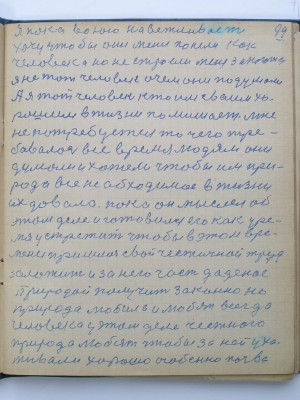 99
я пока во мною на ветливост
хочу чтобы они меня поняли как
человека но не строили меня з
я не тот человек о чем они подумали
А я тот человек кто им своим хо-
рошим в жизни помешает мне
не потребуется то чего тре-
бавалось все время людям они
думали и хотели чтобы им при-
рода все необходимое в жизни
их давала. пока он мыслел об
этом деле и готовился его как
встретить чтобы в этом вре-
мени пришлось свой честичный труд
заложить и за него час даденое
природой получит законно но
природа любила и любят всегда
человека у этом деле честного
природа любят чтобы за ней уха-
живали хорошо особенно почва